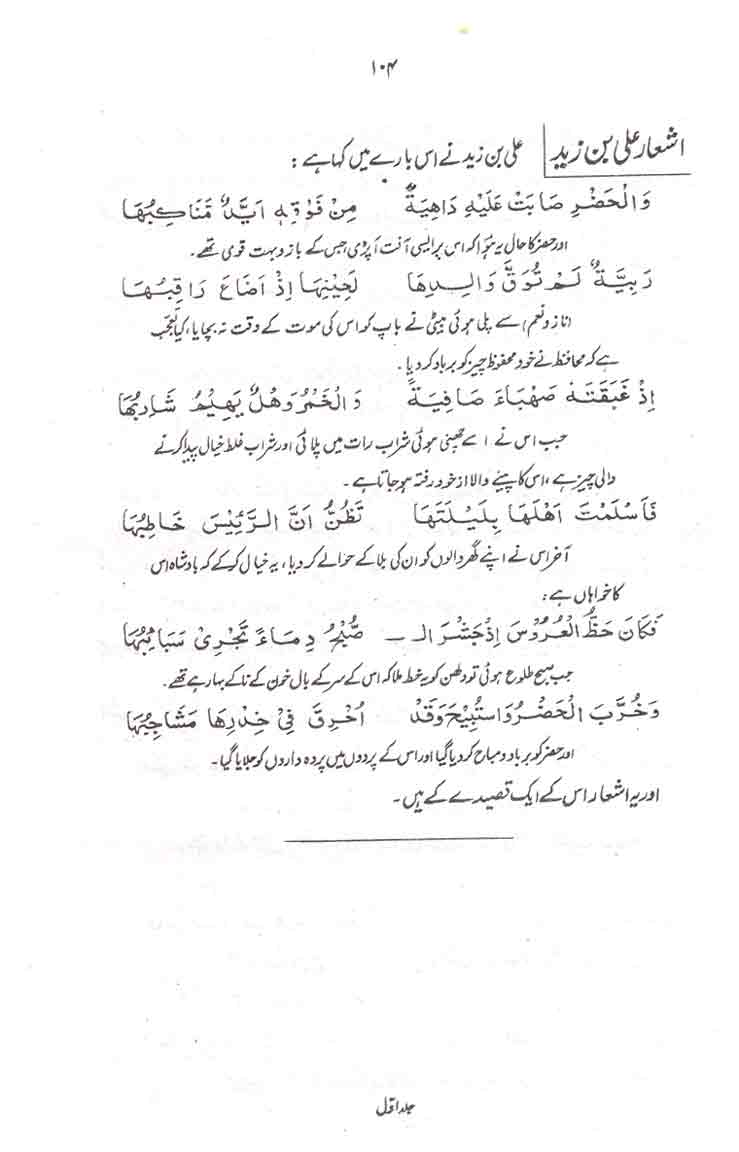 ۱۰۴
اشعار علی بن زید علی بن زید نے اس بارے میں کہا ہے :
وَالْحَضْرِ صَابَتْ عَلَيْهِ دَاهِيَةٌ مِنْ فَوْقِهِ اَيِّدٌ مَّنَاكِبُهَا
اور حضر کا حال یہ ہوا کہ اس پر ایسی آفت آ پڑی جس کے بازو بہت قوی تھے ۔
رَبِيَّةٌ لَمْ تُوَقِّ وَالِدِهَا لِحَيْنِهَا اِذْ اَضَاعَ رَاقِبُهَا
(ناز و نعم) سے پلی ہوئی بیٹی نے باپ کو اس کی موت کے وقت نہ بچایا، کیا تعجب
ہے کہ محافظ نے خود محفوظ چیز کو برباد کر دیا ۔
اِذْ غَبَقَتْهُ صَهْبَاءَ صَافِيَةً وَالْخَمْرُ وَهْلٌ يَهِيْمُ شَارِبُهَا
جب اس نے اسے چھنی ہوئی شراب رات میں پلائی اور شراب غلط خیال پیدا کرنے
والی چیز ہے ، اس کا پینے والا از خود رفتہ ہو جاتا ہے ۔
فَاَسْلَمَتْ اَهْلَهَا بِلَيْلَتِهَا تَظُنُّ اَنَّ الرَّئِيْسَ خَاطِبُهَا
آخر اس نے اپنے گھر والوں کو ان کی بلا کے حوالے کر دیا ، یہ خیال کر کے کہ بادشاہ اس
کا خواہاں ہے :
فَكَانَ حَظُّ الْعُرُوْسِ اِذْ جَشَرَ الـ ـصُّبْحُ دِمَاءً تَجْرِىْ سَبَائِبُهَا
جب صبح طلوع ہوئی تو دلھن کو یہ خط ملا کہ اس کے سر کے بال خون کے ناکے بہا رہے تھے ۔
وَخُرِّبَ الْحَضْرُ وَاسْتُبِيْحَ وَقَدْ اُحْرِقَ فِىْ خِدْرِهَا مَشَاجِبُهَا
اور حضر کو برباد و مباح کر دیا گیا اور اس کے پردوں میں پردہ داروں کو جلایا گیا ۔
اور یہ اشعار اس کے ایک قصیدے کے ہیں ۔
جلد اول